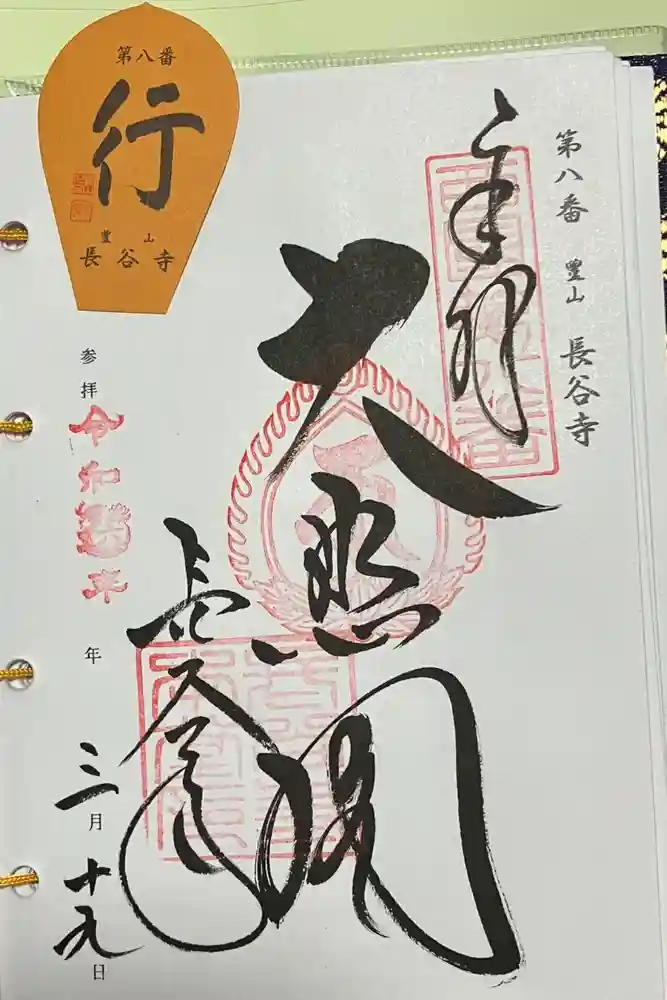 第八番
行
豊山
長谷寺
第八番 豊山 長谷寺
奉拝
大悲閣
長谷寺
参拝
令和
年
三月
十九日